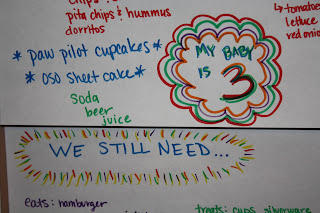 chips &
pita chips & hummus
dorritos
* paw pilot cupcakes *
* oso sheet cake *
soda
beer
juice
MY BABY
IS 3
tomatoes
lettuce
red onio
WE STILL NEED...
eats: hamburger
treats: cups, silverware